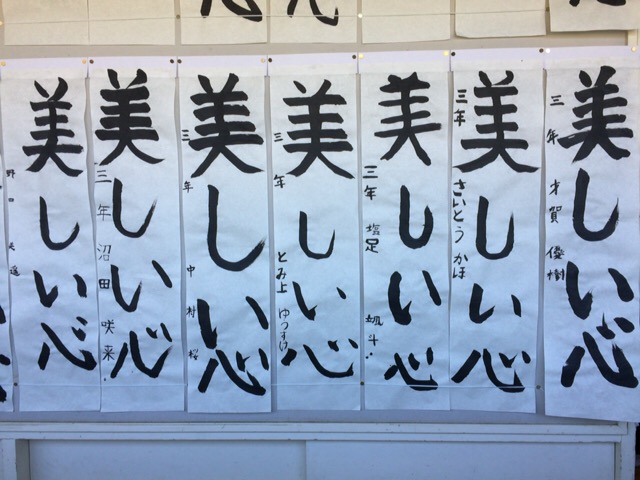 美しい心
三年 才賀 優樹
美しい心
三年 さいとう かほ
美しい心
三年 塩足
美しい心
三年 とみ上 ゆうすけ
美しい心
三年 中村 桜
美しい心
三年 沼田 咲来
美しい心
野田